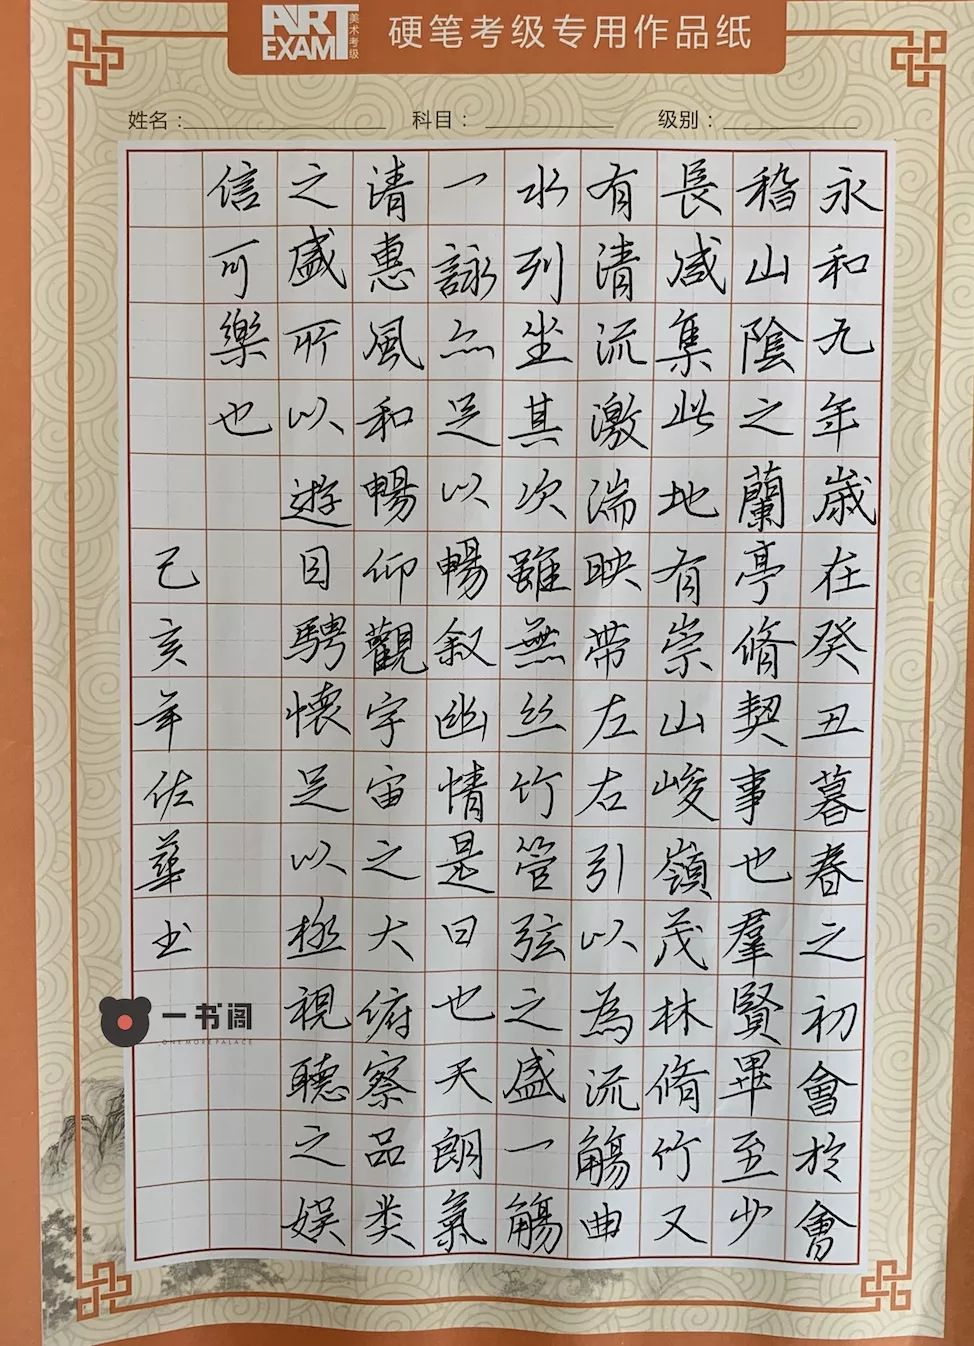 ART EXAM 美术考级
硬笔考级专用作品纸
姓名：
科目：
级别：
永和九年歲在癸丑暮春之初會於會
稽山陰之蘭亭脩契事也羣賢畢至少
長咸集此地有崇山峻嶺茂林脩竹又
有清流激湍映带左右引以為流觴曲
水列坐其次雖無丝竹管弦之盛一觴
一詠亦足以暢叙幽情是日也天朗氣
清惠風和暢仰觀宇宙之大俯察品类
之盛所以遊目騁懷足以極視聽之娱
信可樂也
己亥年佐華书
一书阁
ONE MORE PALACE